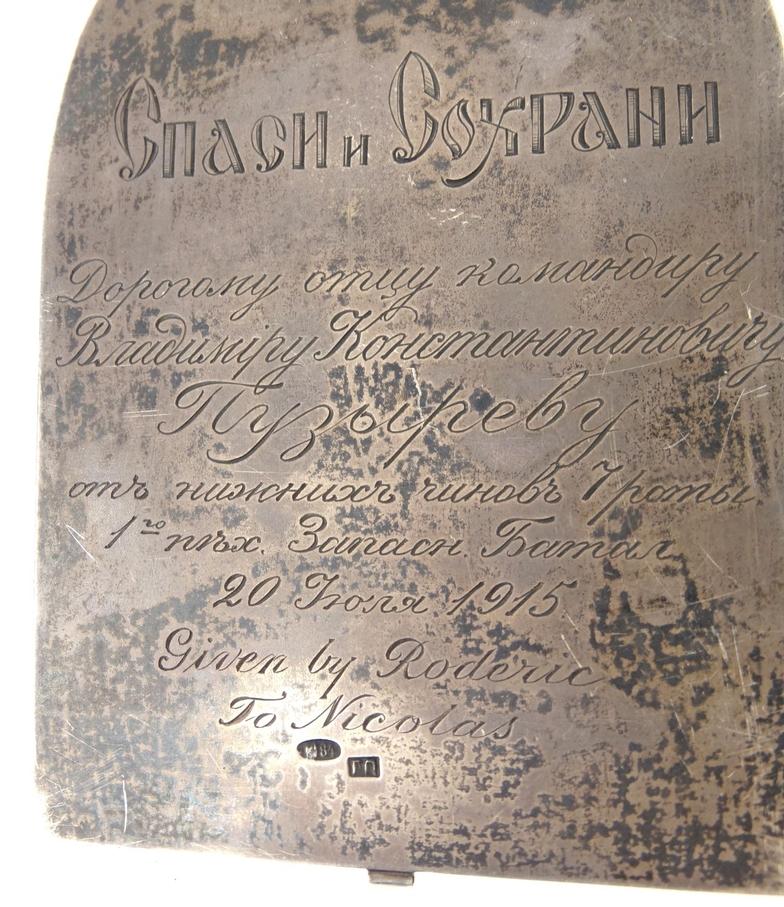 Спаси и Сохрани
Дорогому отцу командиру
Владиміру Константиновичу
Пузыреву
отъ нижнихъ чиновъ 7 роты
1го пѣх. Запасн. Батал
20 Юоля 1915
Given by Roderic
To Nicolas
84
ГП